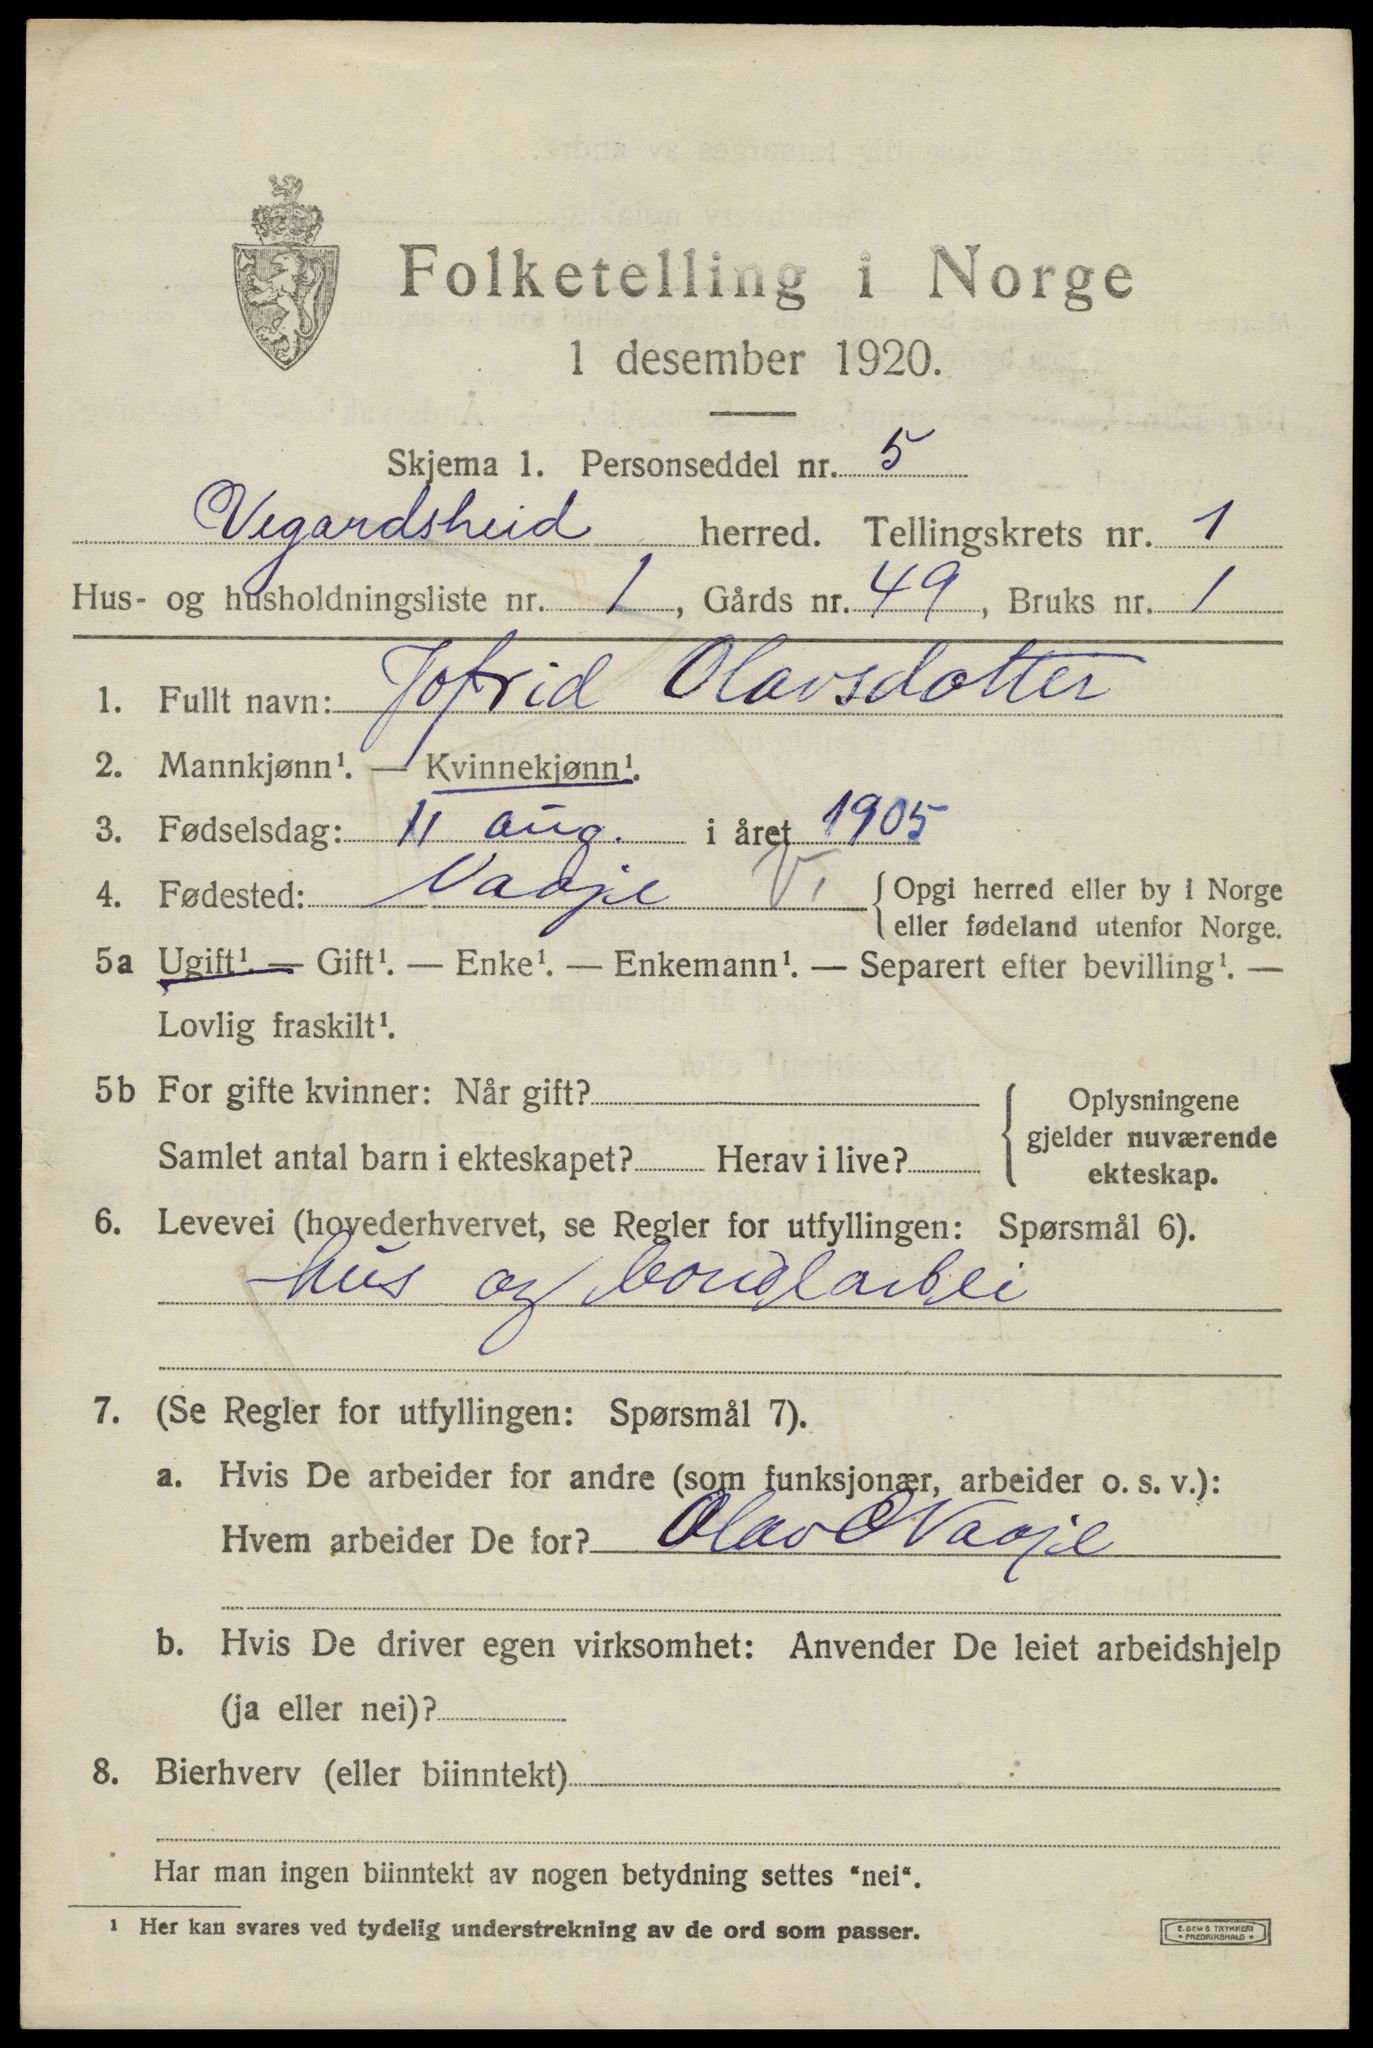 Folketelling i Norge
1 desember 1920.
Skjema 1. Personseddel nr. 5
Vegardsheid herred. Tellingskrets nr. 1
Hus- og husholdningsliste nr. 1, Gårds nr. 49, Bruks nr. 1
1. Fullt navn: Jofrid Olavsdotter
2. Mannkjønn¹. — Kvinnekjønn¹.
3. Fødselsdag: 11 aug. i året 1905
4. Fødested: Vaaje V. {Opgi herred eller by i Norge
eller fødeland utenfor Norge.
5a Ugift¹. — Gift¹. — Enke¹. — Enkemann¹. — Separert efter bevilling¹. —
Lovlig fraskilt¹.
5b For gifte kvinner: Når gift?
Samlet antal barn i ekteskapet? Herav i live?
Oplysningene
gjelder nuværende
ekteskap.
6. Levevei (hovederhvervet, se Regler for utfyllingen: Spørsmål 6).
hus og bondearbei
7. (Se Regler for utfyllingen: Spørsmål 7).
a. Hvis De arbeider for andre (som funksjonær, arbeider o. s. v.):
Hvem arbeider De for? Olav O Vaaje
b. Hvis De driver egen virksomhet: Anvender De leiet arbeidshjelp
(ja eller nei)?
8. Bierhverv (eller biinntekt)
Har man ingen biinntekt av nogen betydning settes "nei".
¹ Her kan svares ved tydelig understrekning av de ord som passer.
E. SEM'S TRYKKERI
• FREDRIKSHALD •